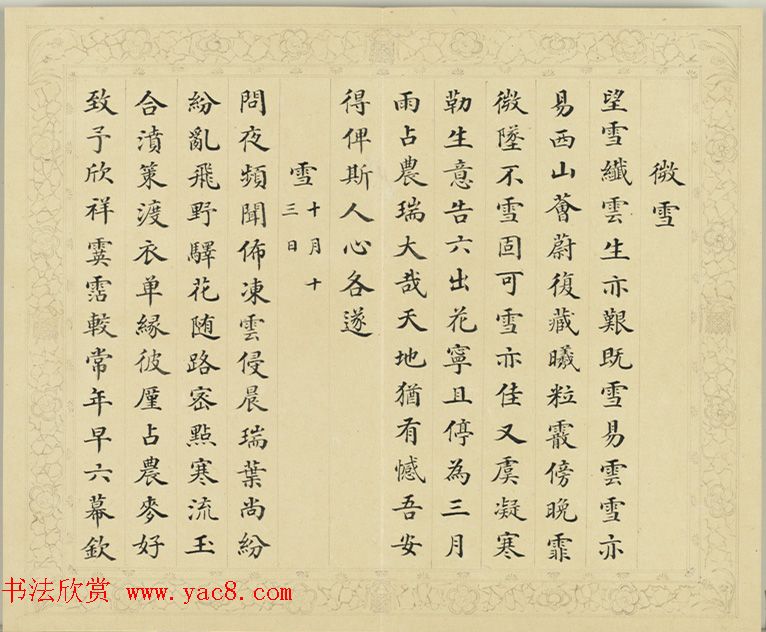 微雪
望雪纖雲生亦艱既雪易雲雪亦
易西山薈蔚復藏曦粒霰傍晚霏
微墜不雪固可雪亦佳又虞凝寒
勒生意告六出花寧且停為三月
雨占農瑞大哉天地猶有憾吾安
得俾斯人心各遂
雪十月十
三日
問夜頻聞佈凍雲侵晨瑞葉尚紛
紛亂飛野驛花随路密點寒流玉
合濆策渡衣单緣彼厪占農麥好
致予欣祥霙霑較常年早六幕欽
书法欣赏 www.yac8.com